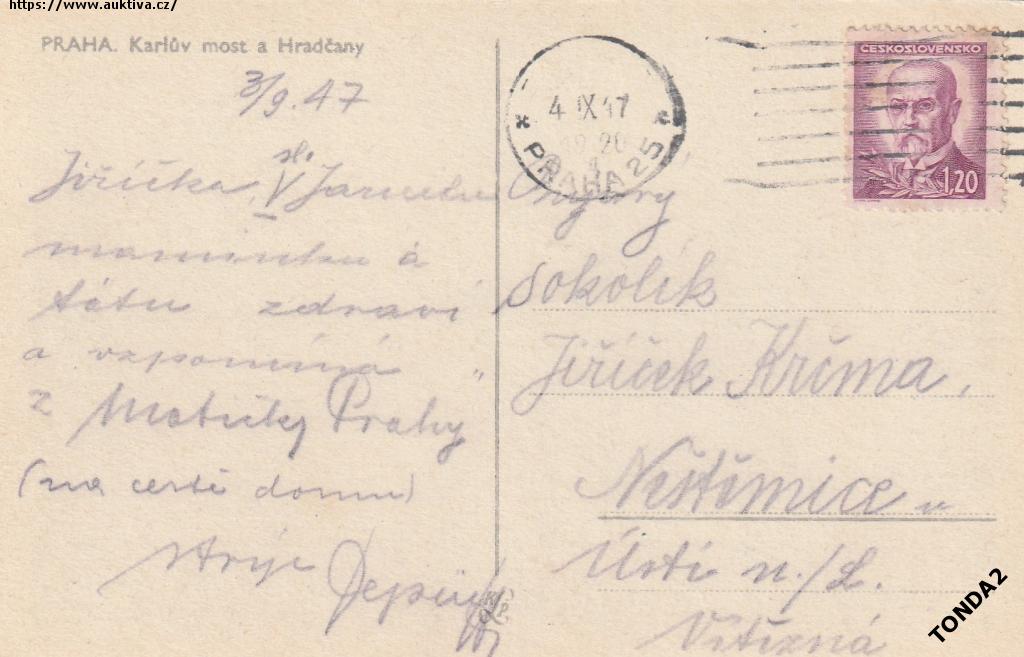 https://www.auktiva.cz/
PRAHA. Karlův most a Hradčany
3/9.47
sl.
Jiříčka, V Jarmilu
maminku a
tátu zdraví
a vzpomíná
z Matičky Prahy
(na cestě domů)
strýc
4 IX 47
PRAHA 25
ČESKOSLOVENSKO
1,20
sokolík
Jiříček Krčma,
Neštěmice u
Ústí n./L.
Vítězná
TONDA2